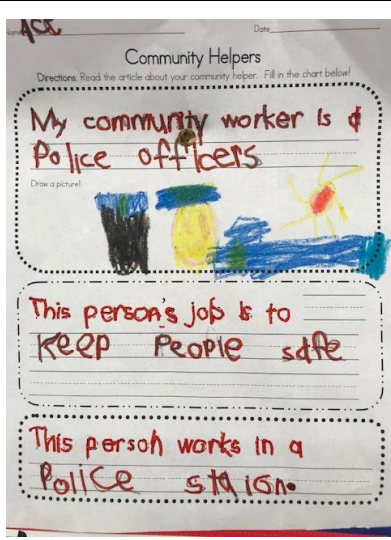 Name Ace Date
Community Helpers
Directions: Read the article about your community helper. Fill in the chart below!
My community worker is a
Police officers
Draw a picture!
This person's job is to
KEEP PEOPLE safe
This person works in a
Police staion.